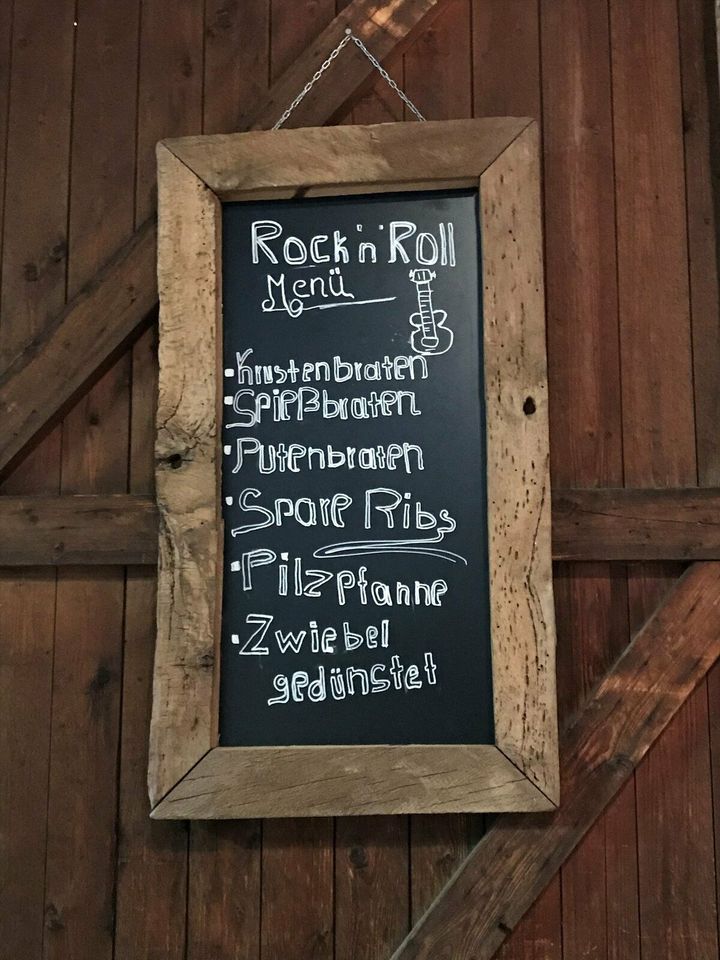 Rock'n'Roll
Menü
· Krustenbraten
· Spießbraten
· Putenbraten
· Spare Ribs
· Pilzpfanne
· Zwiebel
gedünstet